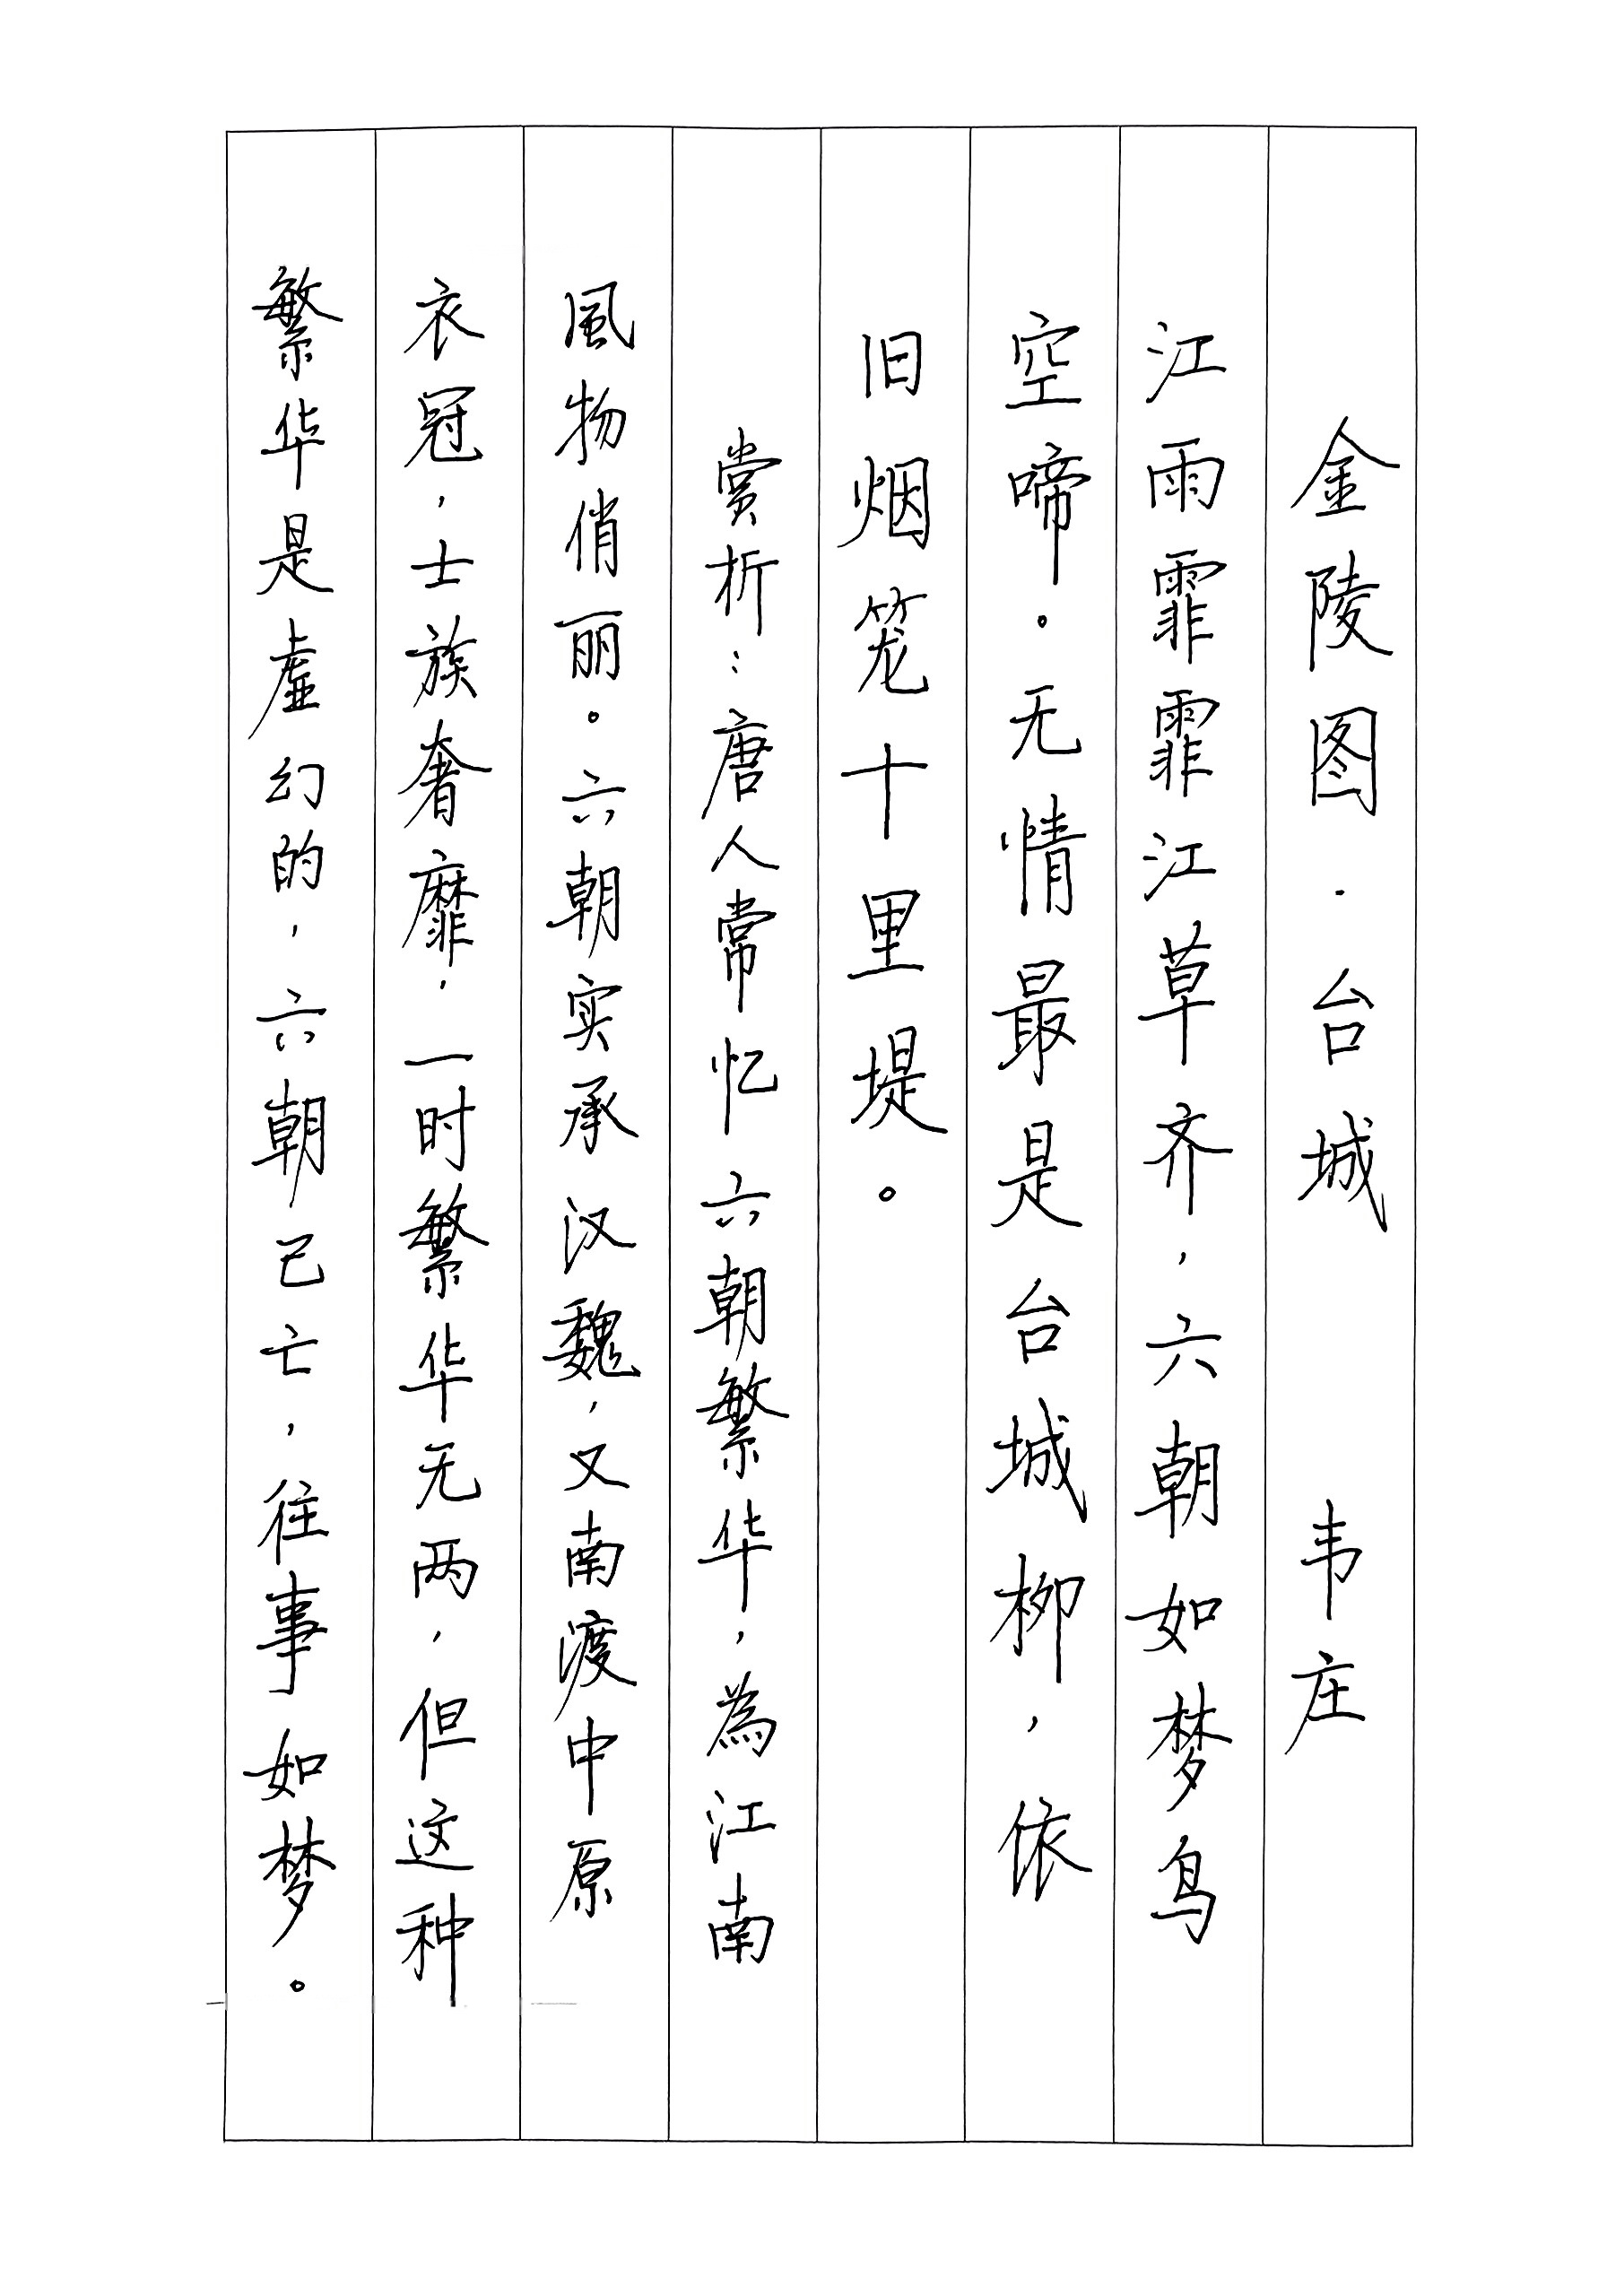 金陵图·台城 韦庄
江雨霏霏江草齐，六朝如梦鸟
空啼。无情最是台城柳，依
旧烟笼十里堤。
赏析：唐人常忆六朝繁华，為江南
風物俏丽。六朝实承汉魏，又南渡中原
衣冠，士族奢靡，一时繁华无两，但这种
繁华是虚幻的，六朝已亡，往事如梦。